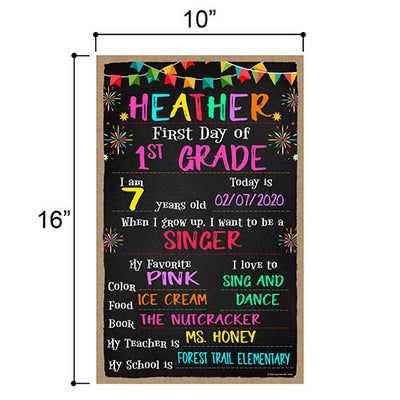 10”
16”
HEATHER
First Day of
1ST GRADE
I am
Today is
7 years old
02/07/2020
When I grow up, I want to be a
SINGER
My Favorite
I love to
Color PINK
SING AND
Food ICE CREAM
DANCE
Book THE NUTCRACKER
My Teacher is MS. HONEY
My School is FOREST TRAIL ELEMENTARY